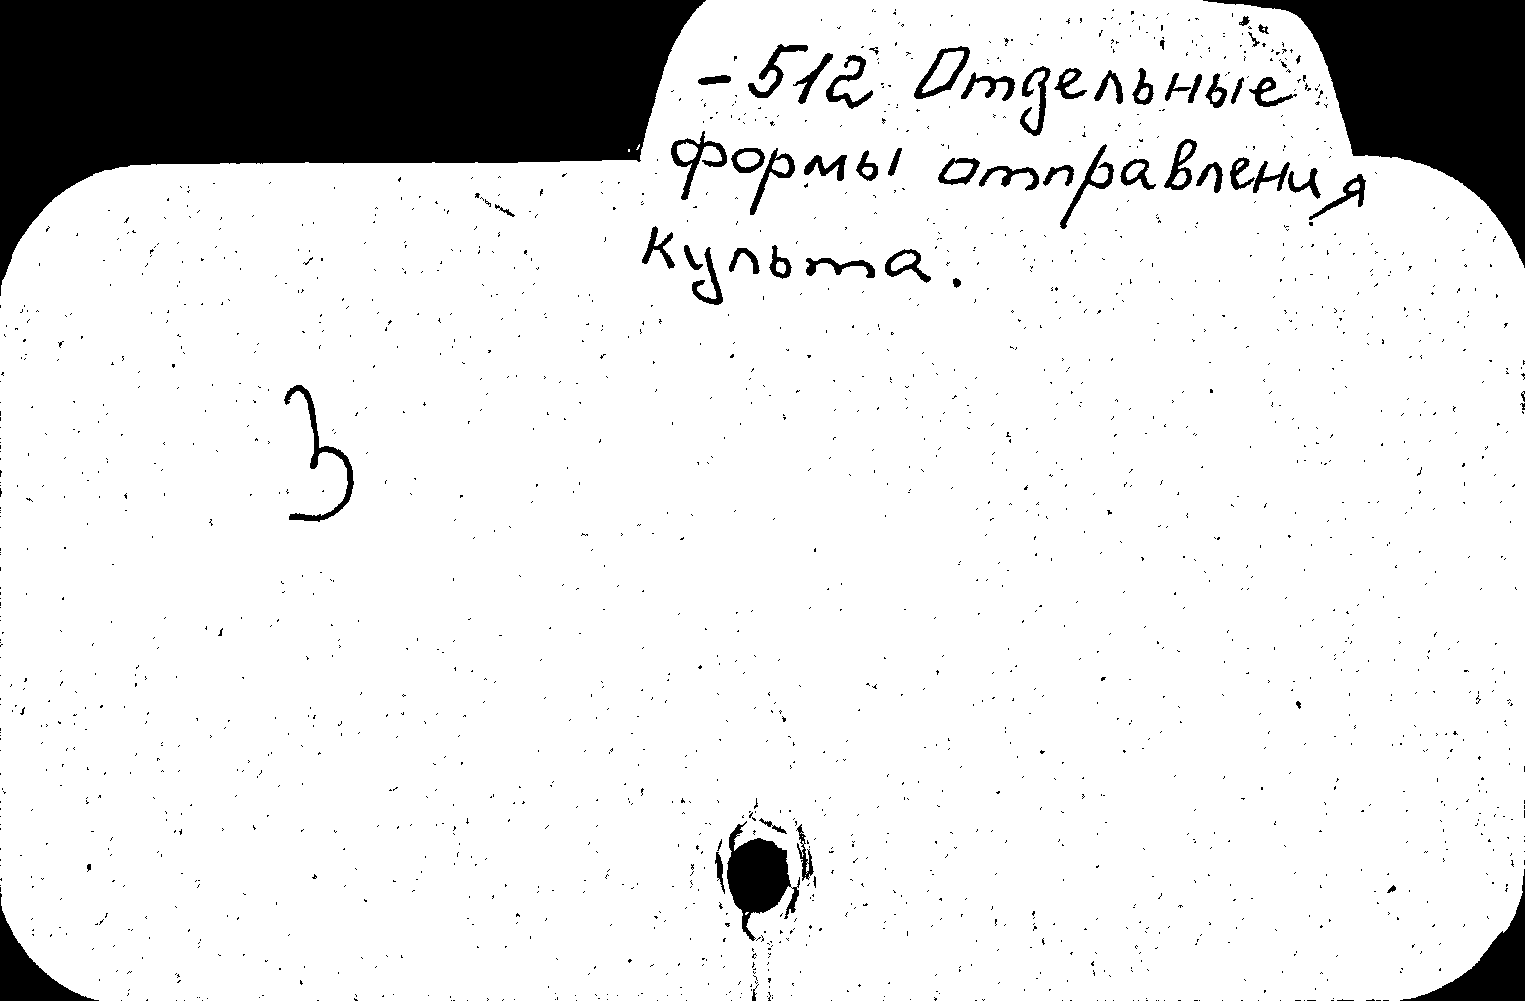 -512 Отдельные
формы отправления
культа.